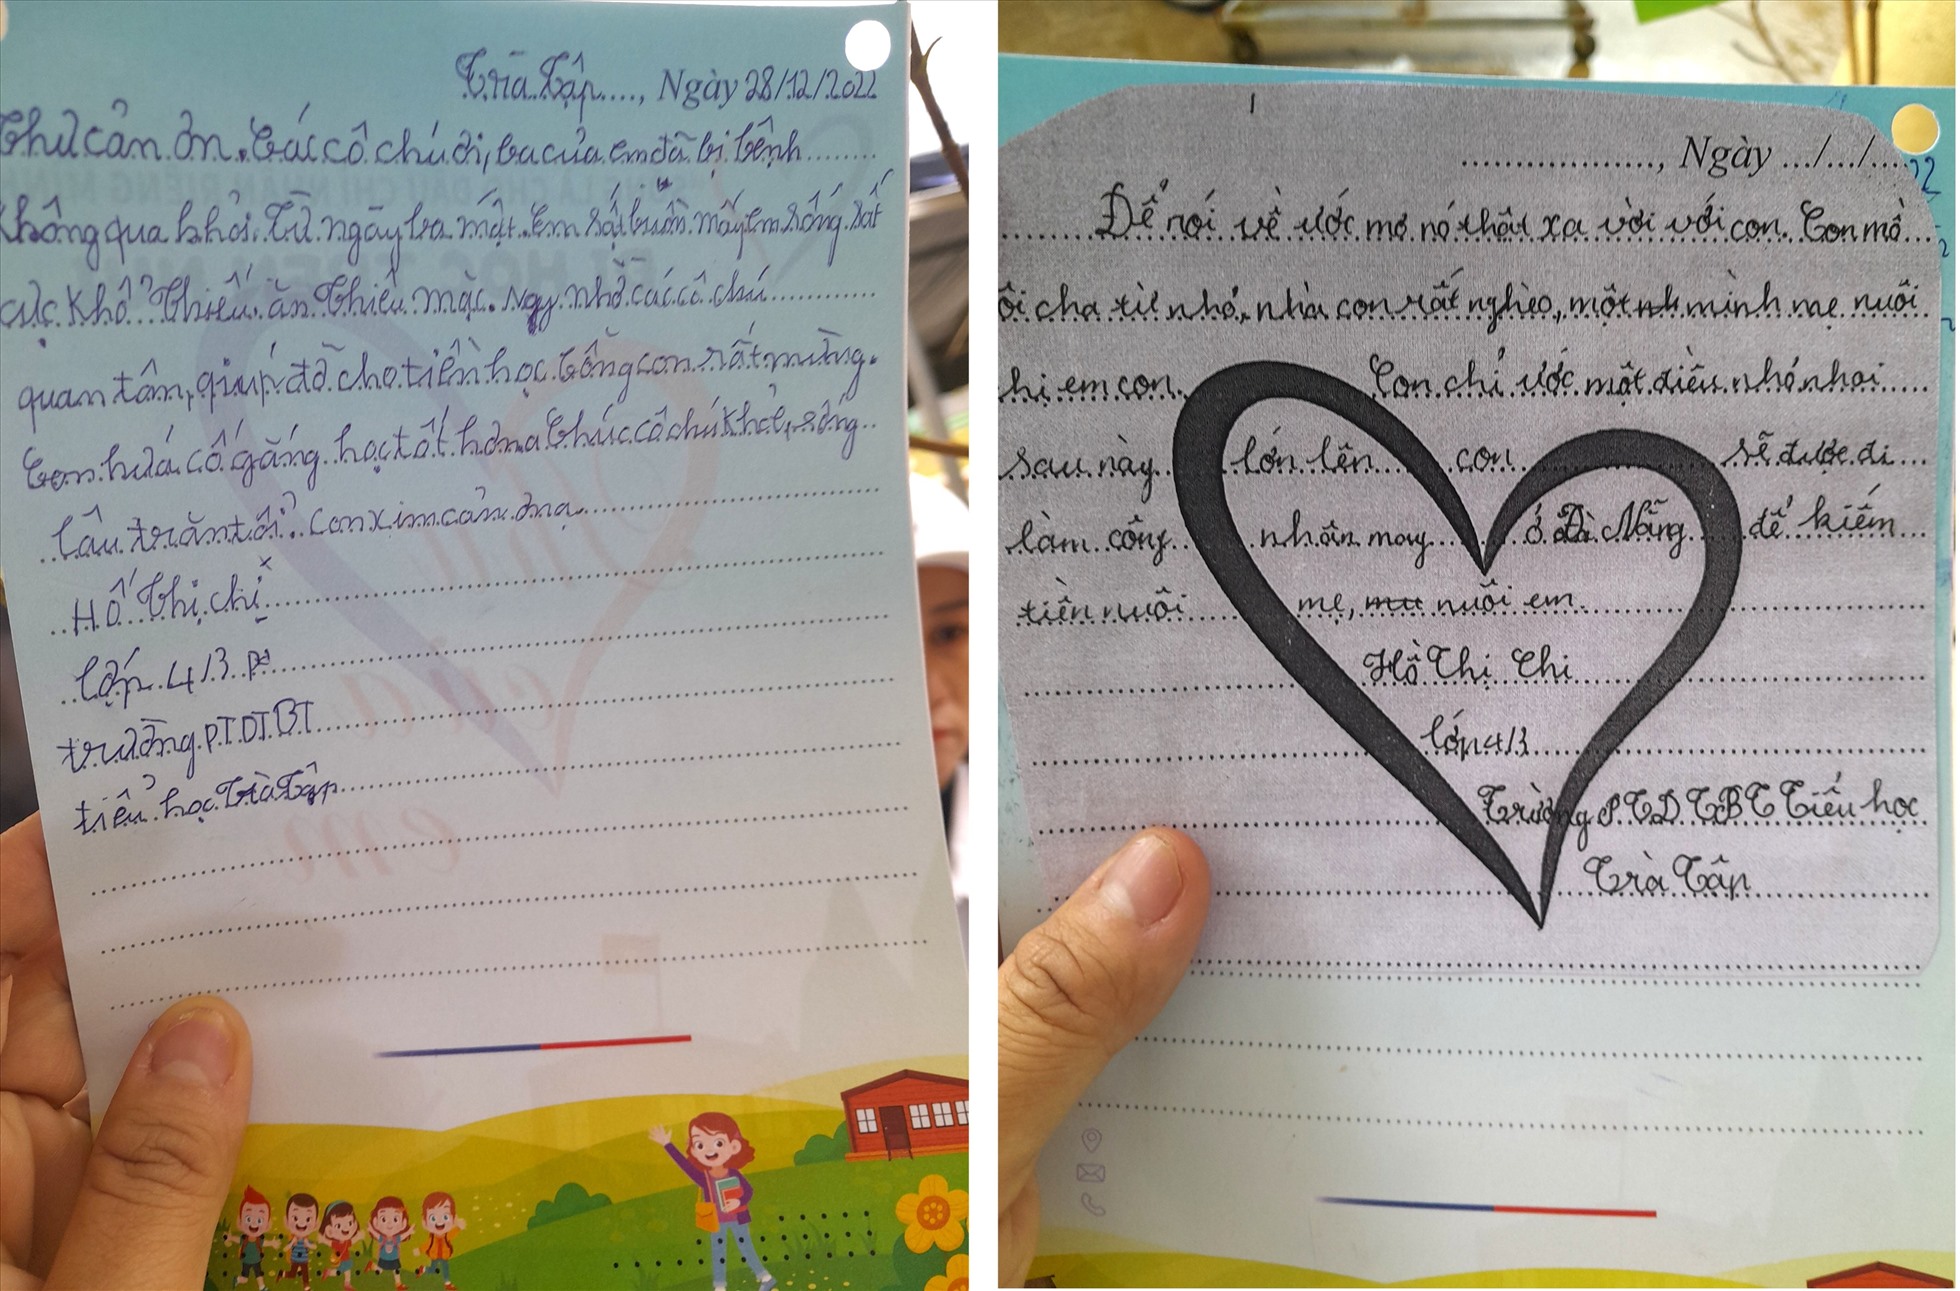 Trà Tập...., Ngày 28/12/2022
Thư cản ơn. Các cô chú ơi, ba của em đã bị bệnh
không qua khỏi. Từ ngày ba mất. Em rất buồn mấy em sống rất
cực khổ Thiếu ăn Thiếu mặc. Ngy nhờ các cô chú
quan tâm, giúp đỡ cho tiền học bổng con rất mừng.
Con hứa cố gắng học tốt hơn ạ Chúc cô chú khỏe, sống
lâu trăm tổi. Con xim cản ơn ạ
Hồ Thị chi
lớp 4/3
trường PTDTBT
tiểu học Trà Tập
..................., Ngày .../.../....
Để nói về ước mơ nó thật xa vời với con. Con mồ
ôi cha từ nhỏ, nhà con rất nghèo, một mình mẹ nuôi
hị em con. Con chỉ ước một điều nhỏ nhoi
sau này lớn lên con sẽ được đi
làm công nhân may ở Đà Nẵng để kiếm
tiền nuôi mẹ, nuôi em.
Hồ Thị Chi
lớp 4/3
Trường PTDTBT Tiểu học
Trà Tập